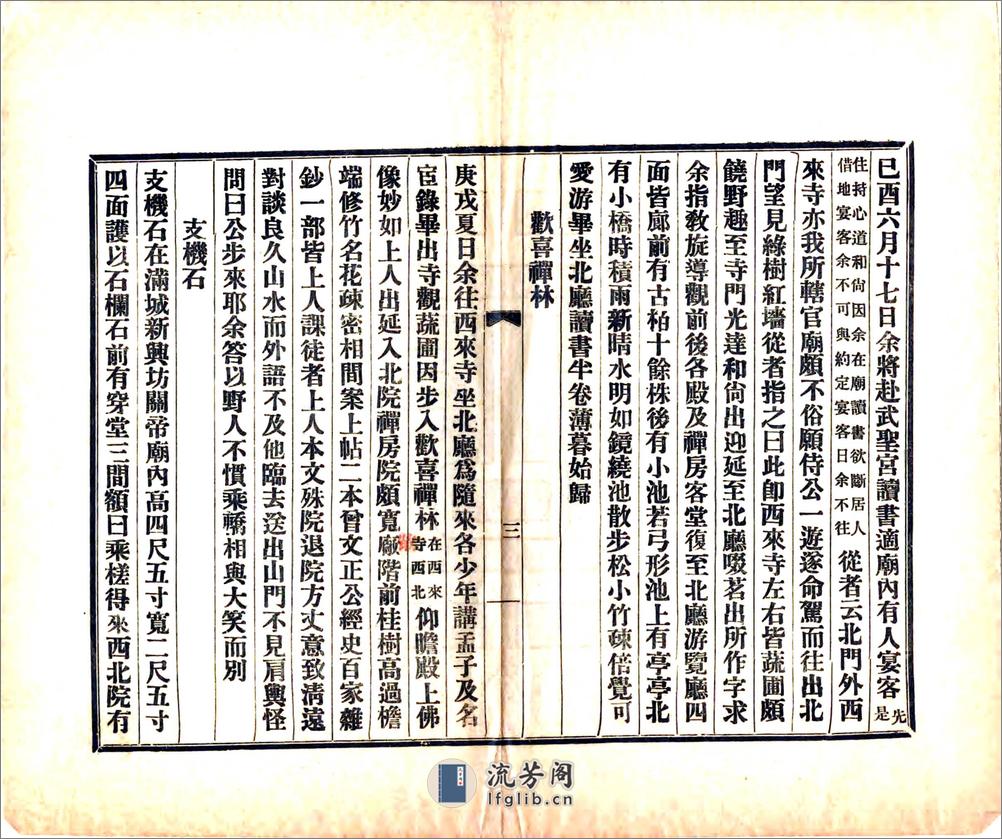 已酉六月十七日余將赴武聖宮讀書適廟內有人宴客先是
住持心道和尙因余在廟讀書欲斷居人
借地宴客余不可與約定宴客日余不往
從者云北門外西
來寺亦我所轄官廟頗不俗願侍公一遊遂命駕而往出北
門望見綠樹紅墻從者指之曰此卽西來寺左右皆蔬圃頗
饒野趣至寺門光達和尙出迎延至北廳啜茗出所作字求
余指敎旋導觀前後各殿及禪房客堂復至北廳游覽廳四
面皆廊前有古柏十餘株後有小池若弓形池上有亭亭北
有小橋時積雨新晴水明如鏡繞池散步松小竹疎倍覺可
愛游畢坐北廳讀書半卷薄暮始歸
歡喜禪林
三
庚戌夏日余往西來寺坐北廳爲隨來各少年講孟子及名
宦錄畢出寺觀蔬圃因步入歡喜禪林在西來寺西北仰瞻殿上佛
像妙如上人出延入北院禪房院頗寬厰階前桂樹高過檐
端修竹名花疎密相間案上帖二本曾文正公經史百家雜
鈔一部皆上人課徒者上人本文殊院退院方丈意致淸遠
對談良久山水而外語不及他臨去送出山門不見肩輿怪
問曰公步來耶余答以野人不慣乘轎相與大笑而別
支機石
支機石在滿城新興坊關帝廟內高四尺五寸寬二尺五寸
四面護以石欄石前有穿堂三間額曰乘槎得來西北院有
流芳阁
lfglib.cn